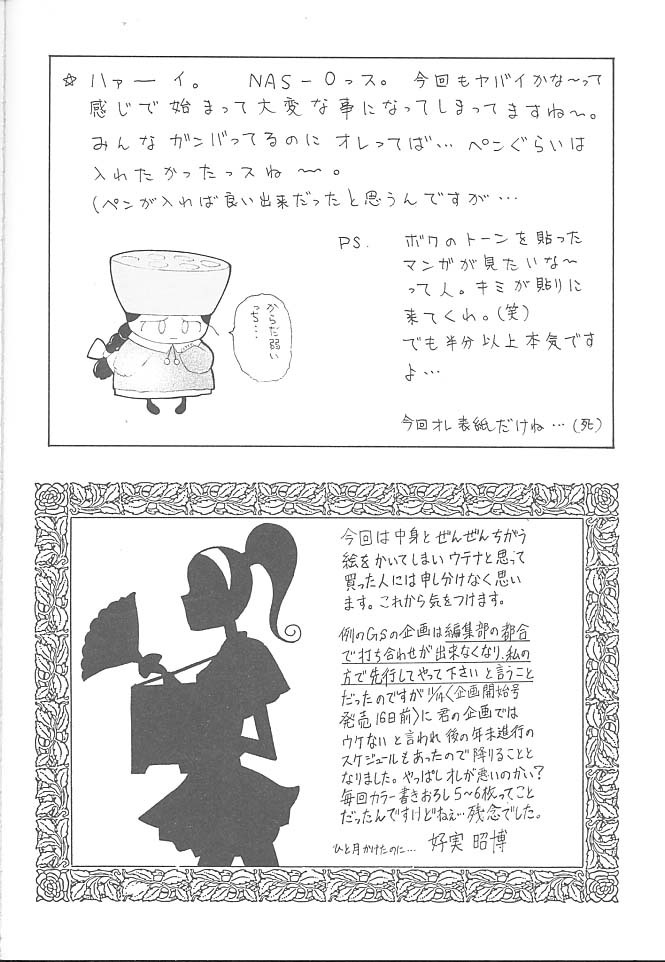 ☆ ハァーイ。 NAS-Oっス。今回もヤバイかな〜って
感じで始まって大変な事になってしまってますね〜。
みんなガンバってるのに オレってば… ペンぐらいは
入れたかったっスね 〜 。
(ペンが入れば良い出来だったと思うんですが…
PS. ボクのトーンを貼った
マンガが見たいな〜
って人。キミが貼りに
来てくれ。(笑)
でも半分以上本気です
よ…
からだ弱い
っち…
今回オレ表紙だけね…(死)
今回は中身とぜんぜんちがう
絵をかいてしまいウテナと思って
買った人には申し分けなく思い
ます。これから気をつけます。
例のGSの企画は編集部の都合
で打ち合わせが出来なくなり、私の
方で先行してやって下さいと言うこと
だったのですが 11/14〈企画開始号
発売16日前〉に君の企画では
ウケないと言われ後の年末進行の
スケジュールもあったので降りることと
なりました。やっぱしオレが悪いのかい?
毎回カラー書きおろし5〜6枚ってこと
だったんですけどねぇ…残念でした。
ひと月かけたのに… 好実 昭博